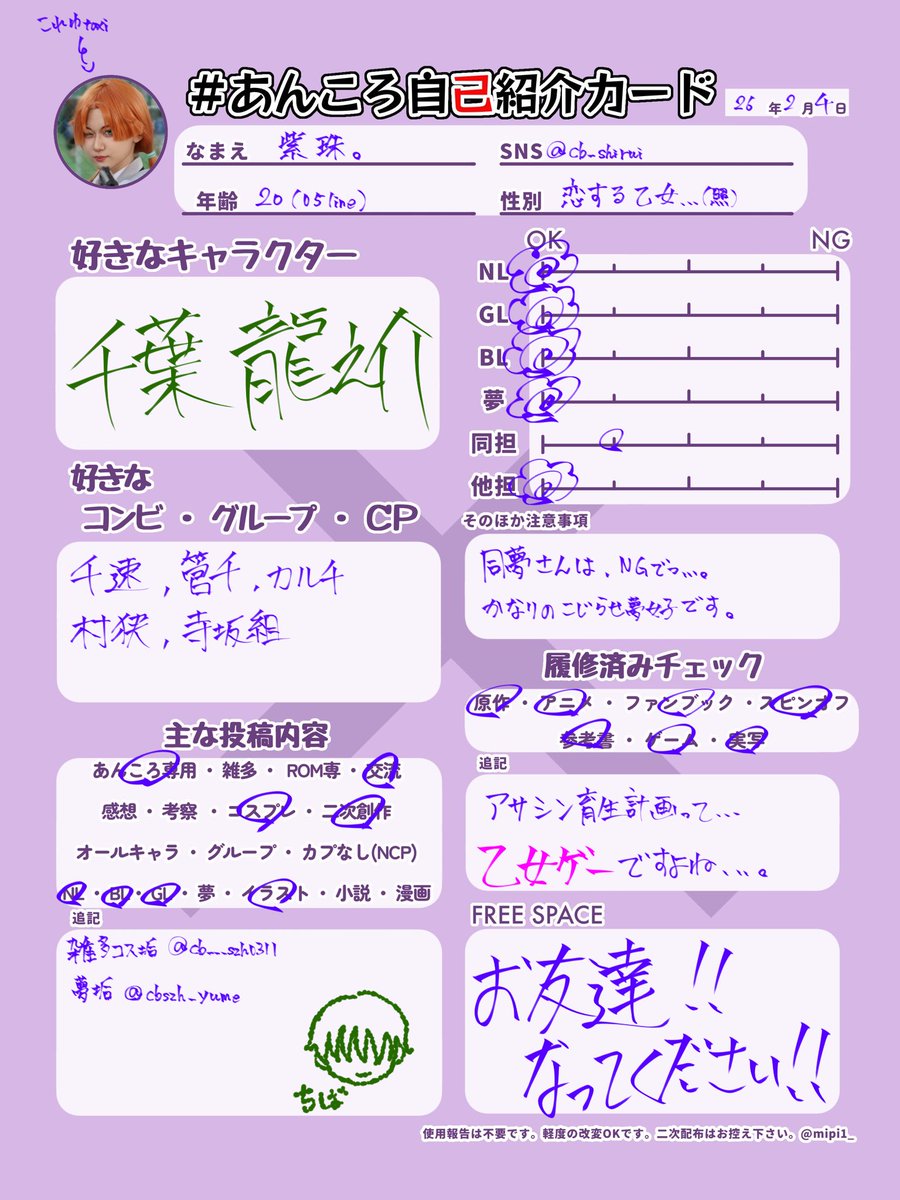 #あんころ自己紹介カード
25年2月4日
なまえ 紫珠。
SNS @cb_shirui
年齢 20(05line)
性別 恋する乙女…(照)
好きなキャラクター
千葉龍之介
OK NG
NL
GL
BL
夢
同担
他担
好きな
コンビ・グループ・CP
千速,菅千,カルチ
村狭,寺坂組
そのほか注意事項
同夢さんは、NGでっ…。
かなりのこじらせ夢女子です。
履修済みチェック
原作・アニメ・ファンブック・スピンオフ
参考書・ゲーム・実写
追記
アサシン育生計画って…
乙女ゲーですよね…。
主な投稿内容
あんころ専用・雑多・ROM専・交流
感想・考察・コスプレ・二次創作
オールキャラ・グループ・カプなし(NCP)
NL・BL・GL・夢・イラスト・小説・漫画
追記
雑多コス垢
夢垢 @cbszh_yume
ちば
FREE SPACE
お友達!!
なってください!!
使用報告は不要です。軽度の改変OKです。二次配布はお控え下さい。@mipi1_